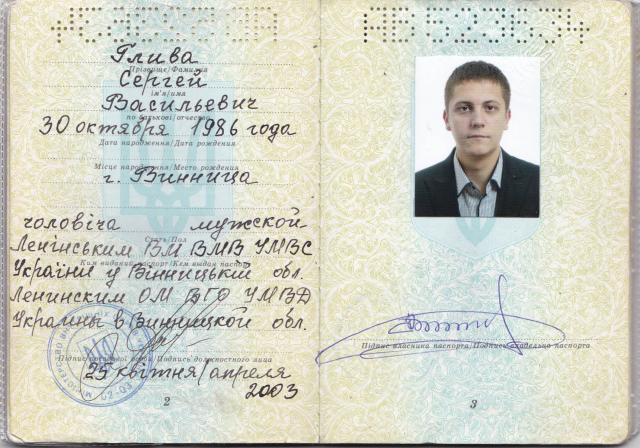 Глива
Прізвище/Фамилия
Сергей
ім'я/имя
Васильевич
по батькові/отчество
30 октября 1986 года
Дата народження/Дата рождения
Місце народження/Место рождения
г. Винница
чоловіча мужской
Стать/Пол
Ленінським ВМ ВМВ УМВС
Ким виданий паспорт/Кем выдан паспорт
України у Вінницькій обл.
Ленинским ОМ ВГО УМВД
Украины в Винницкой обл.
Підпис посадової особи/Подпись должностного лица
25 квітня/апреля
2003
2
Підпис власника паспорта/Подпись владельца паспорта
3